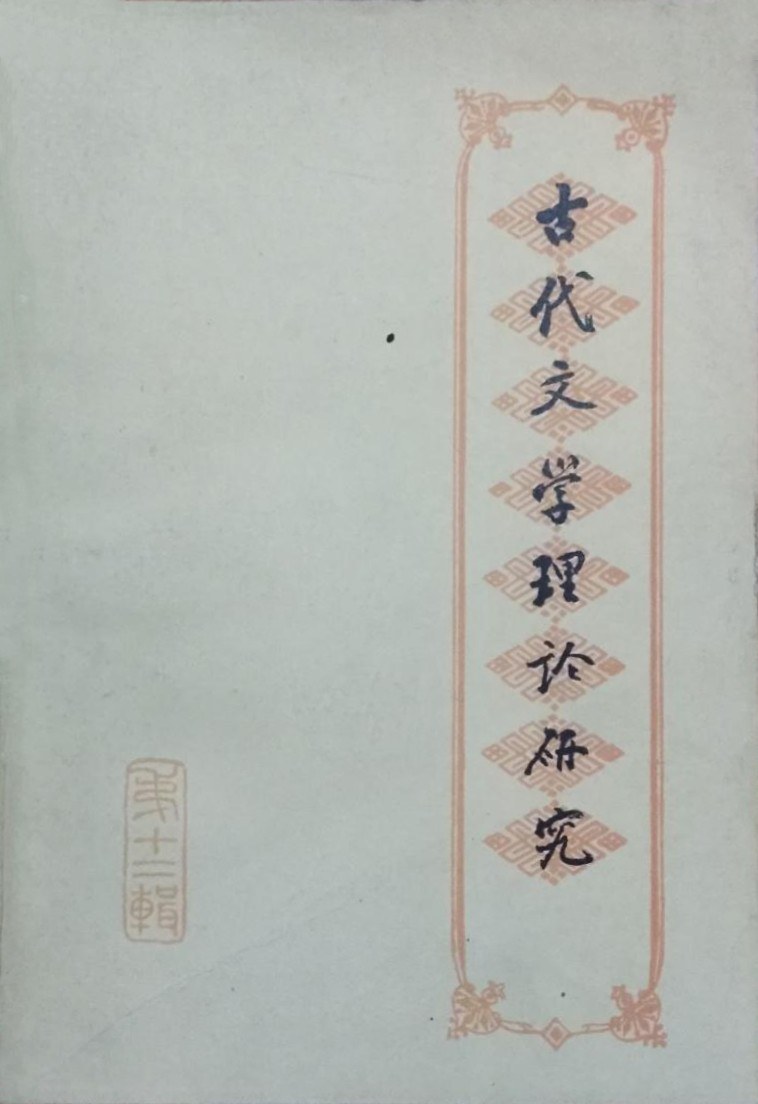 古代文学理论研究
第十二輯